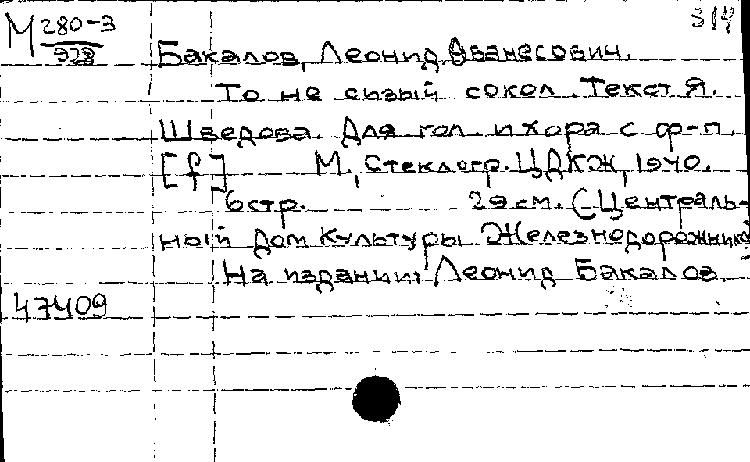 М 280-3 314
928
Бакалов, Леонид Ованесович.
То не сизый сокол. Текст Я.
Шведова. Для гол. и хора с ф-п.
[f] М., Стеклогр. ЦДКЖ, 1940.
6 стр. 29 см. (Централь-
ный Дом Культуры Железнодорожника
На издании: Леонид Бакалов.
47409